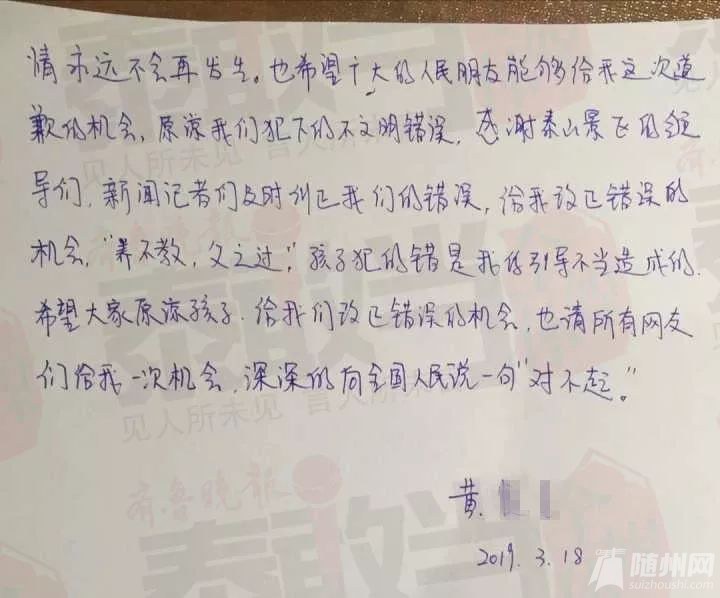 情永远不会再发生。也希望广大的人民朋友能够给我这次道
歉的机会，原谅我们犯下的不文明错误，感谢泰山景区的领
导们，新闻记者们及时纠正我们的错误，给我改正错误的
机会，“养不教，父之过”，孩子犯的错是我的引导不当造成的.
希望大家原谅孩子.给我们改正错误的机会，也请所有网友
们给我一次机会.深深的向全国人民说一句“对不起”。
黄.
2019.3.18
泰敢当
见人所未见 言人所未
齐鲁晚报
泰敢当
见人所未见 言人所未
齐鲁晚报
泰敢当
随州网
suizhoushi.com